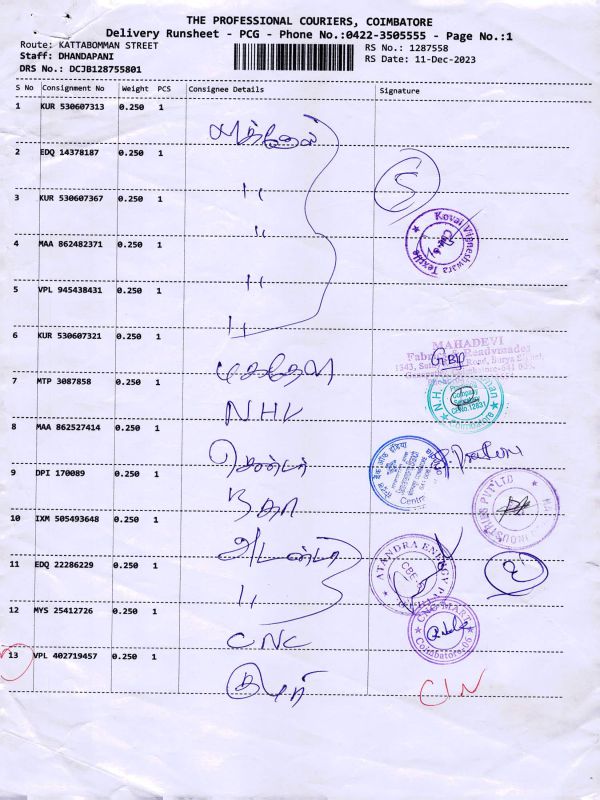 THE PROFESSIONAL COURIERS, COIMBATORE
Delivery Runsheet - PCG - Phone No.:0422-3505555 - Page No.:1
Route: KATTABOMMAN STREET
Staff: DHANDAPANI
DRS No.: DCJB128755801
RS No.: 1287558
RS Date: 11-Dec-2023
S No Consignment No Weight PCS Consignee Details Signature
1 KUR 530607313 0.250 1
2 EDQ 14378187 0.250 1
5
3 KUR 530607367 0.250 1 ,,
Kovai Vigneshwara Textile
,,
4 MAA 862482371 0.250 1
,,
5 VPL 945438431 0.250 1
,,
6 KUR 530607321 0.250 1
MAHADEVI
7 MTP 3087858 0.250 1
NHV
8 MAA 862527414 0.250 1
9 DPI 170089 0.250 1
10 IXM 505493648 0.250 1
11 EDQ 22286229 0.250 1
ATANDRA ENERGY
2
,,
12 MYS 25412726 0.250 1
CNC
CNC MARK
Coimbatore-06
13 VPL 402719457 0.250 1
CIN